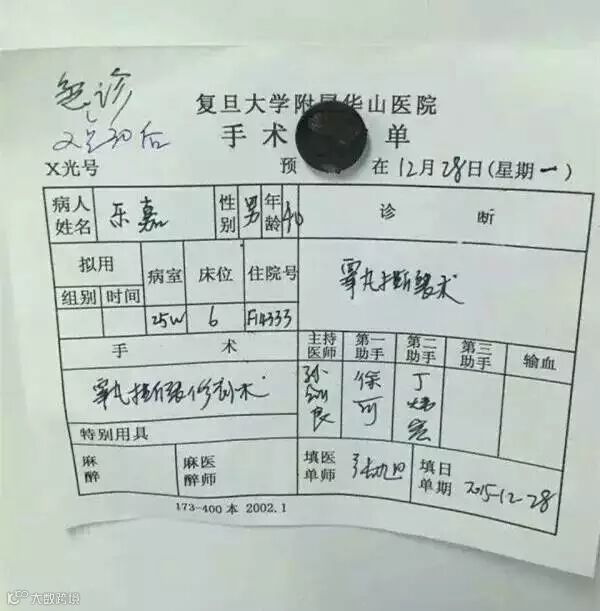 急诊
复旦大学附属华山医院
手术 单
X光号 预 在12月28日(星期一)
病人姓名 乐嘉 性别 男 年龄 40 诊断
拟用 病室 床位 住院号
组别 时间 25W 6 F14333
睾丸 术
手术 主持医师 第一助手 第二助手 第三助手 输血
睾丸 修补术
特别用具
麻醉 麻醉医师 填单医师 填单日期 2015-12-28
173-400本 2002.1
大数跨境